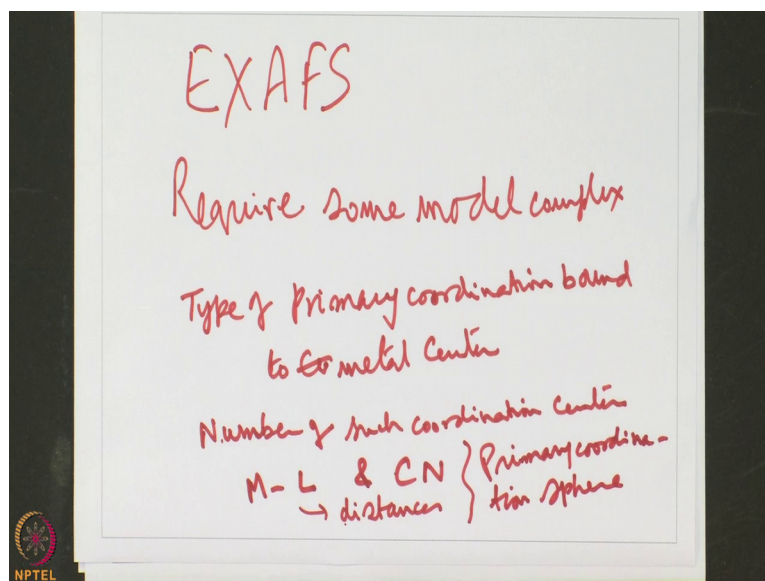 EXAFS
Require some model complex
Type of Primary coordination bound
to metal Center
Number of such coordination center
M-L & CN } Primary coordina-
→ distances tion sphere
NPTEL